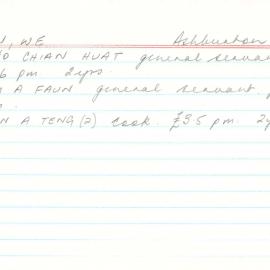 , W.E Ashburton
O CHIAN HUAT general servant
6 pm 2yrs.
A FAUN general servant.
N A TENG (2) cook. £3.5 pm. 2y